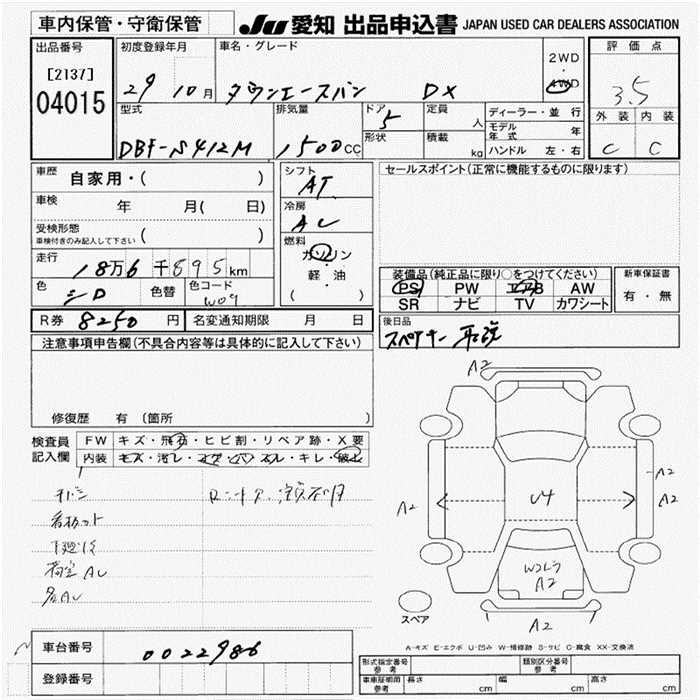 車内保管・守衛保管
JU 愛知 出品申込書 JAPAN USED CAR DEALERS ASSOCIATION
出品番号 初度登録年月 車名・グレード 2WD ・ 4WD 評価点
[2137]
04015 29 10月 タウンエースバン DX 3.5
型式 排気量 ドア 5 定員 人 ディーラー・並行 外装 内装
DBF-S412M 1500CC 形状 積載 kg モデル年式 年 C C
ハンドル 左・右
車歴 自家用・( ) シフト AT セールスポイント(正常に機能するものに限ります)
車検 年 月( 日) 冷房 AC
受検形態 車検付きのみ記入して下さい ( ) 燃料 ガソリン
走行 18万6千895km 軽・油 ( ) 装備品(純正品に限り○をつけてください) 新車保証書
色 シロ 色替 色コード W09 PS PW エアB AW 有・無
SR ナビ TV カワシート
R券 8250円 名変通知期限 月 日 後日品
スペアキー 取説
注意事項申告欄(不具合内容等は具体的に記入して下さい)
修復歴 有 (箇所
検査員記入欄 FW キズ・飛石・ヒビ割・リペア跡・X要
内装 キズ・汚レ・コゲ・穴・スレ・キレ・破レ
看板カット
下廻りS
荷室AC
各AC
A2
A2
A2
A2
U4
A2
A2
スペア
A-キズ E-エクボ U-凹み W-補修跡 S-サビ C-腐食 XX-交換済
車台番号 0022986
登録番号
形式指定番号 参考 類別区分番号 参考
車庫証明用 参考 長さ cm 幅 cm 高さ cm